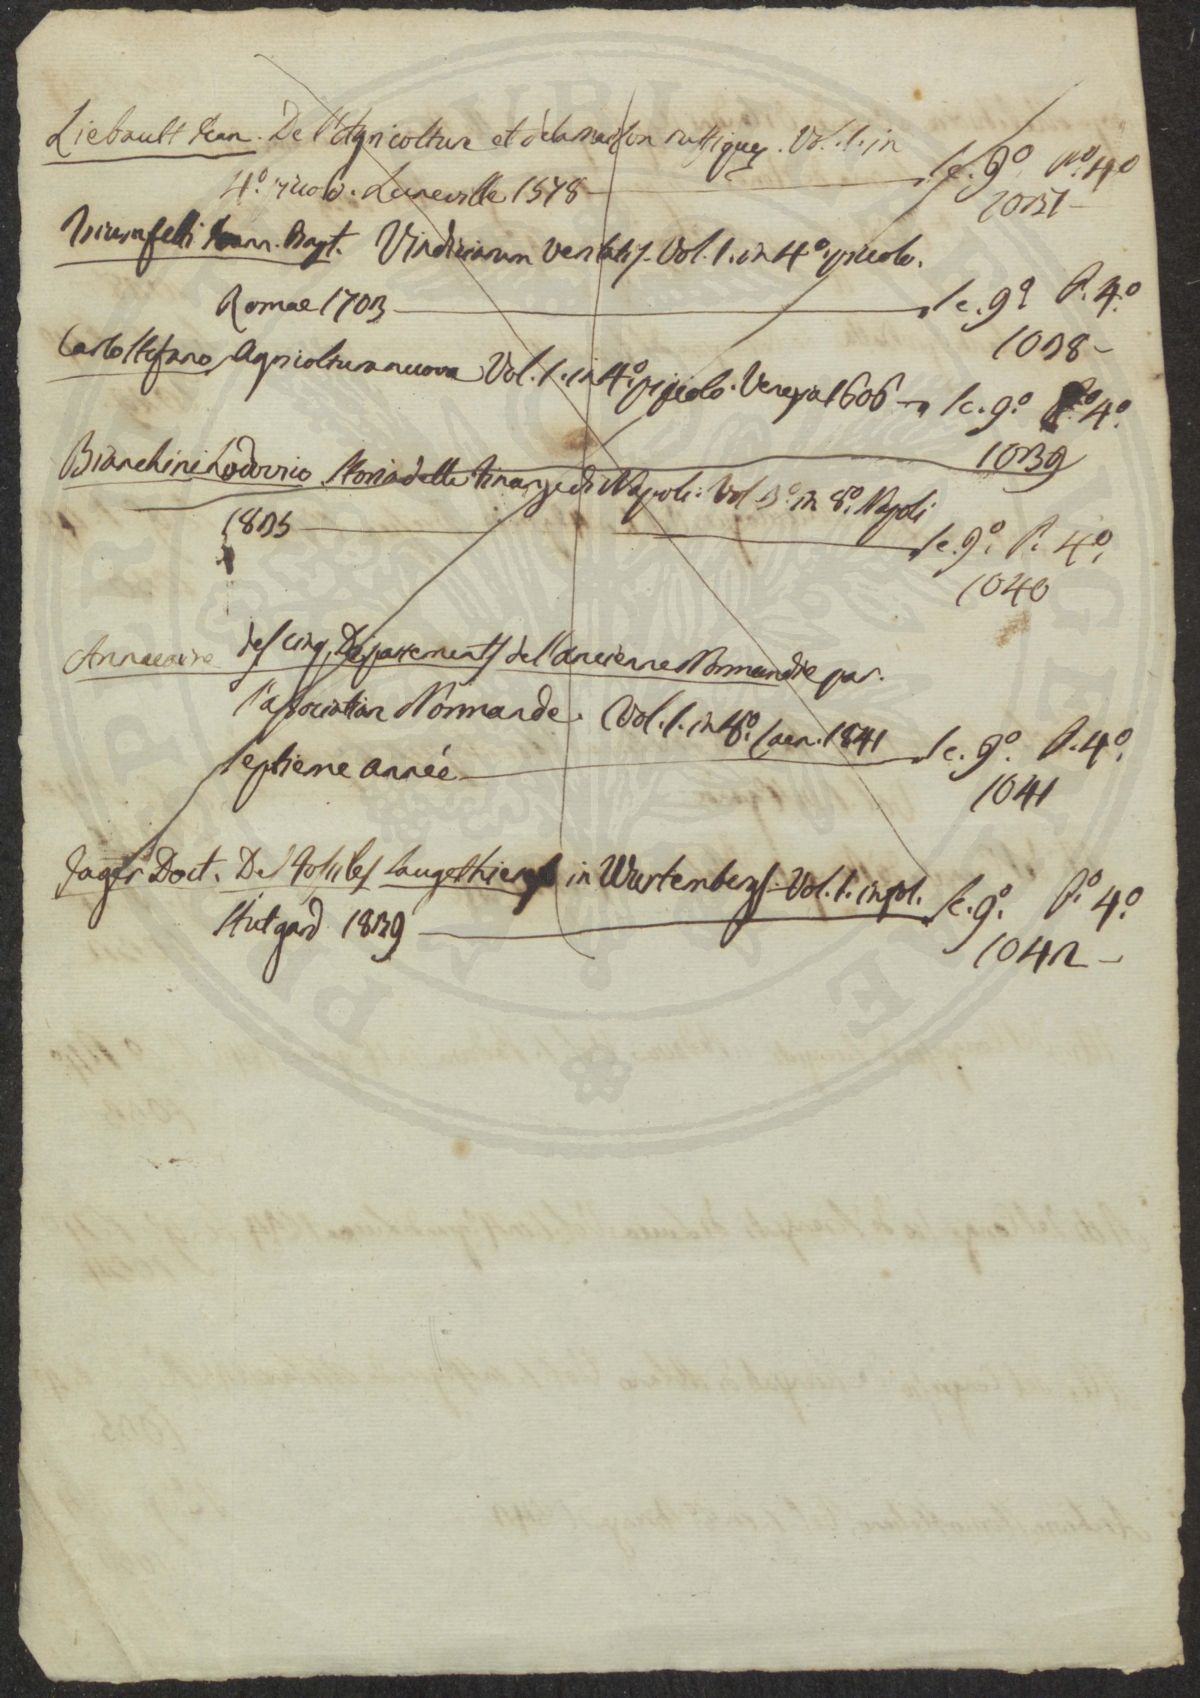 Liebault Jean. De l'Agricolture et de la maison rustiques. Vol. 1. in
4.º picolo. Luneville 1578 — Sc. 9º P.º 4º
1037 -
Triumfetti Joann. Bapt. Vindiciarum veritatis. Vol. 1. in 4º. piccolo.
Romae 1703 — Sc. 9º P. 4.º
1038 -
Carlo Stefano, Agricoltura nuova Vol. 1. in 4º. piccolo. Venezia 1606 — Sc. 9.º P.º 4.º
1039
Bianchini Lodovico Storia delle Finanze di Napoli: Vol 3.º in 8º. Napoli
1835 — Sc. 9º. P. 4º.
1040
Annuaire des cinq Departements de l'ancienne Normandie par.
l'association Normande. Vol. 1. in 8º. Caen. 1841
septieme année — Sc. 9º. P. 4º.
1041
Jager Doct. De fossiles Saugethiere in Wurtemberg. Vol. 1. in fol.
Stutgard 1839 — Sc. 9º. P.º 4º
1042 -